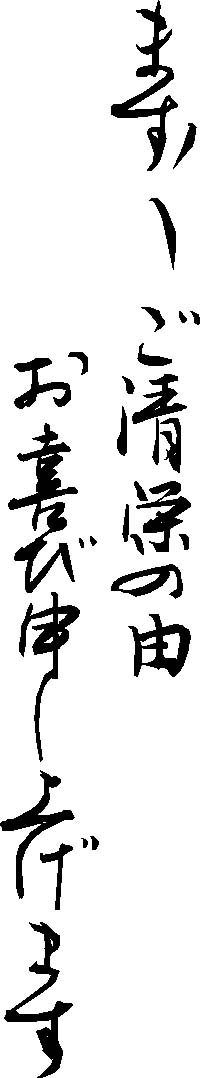 ますますご清栄の由
お喜び申し上げます